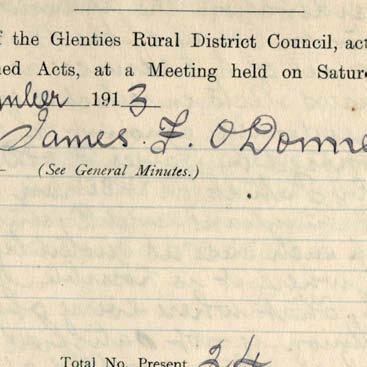 f the Glenties Rural District Council, act
ned Acts, at a Meeting held on Satur
mber 1913
James. F. O'Donne
(See General Minutes.)
Total No. Present 24